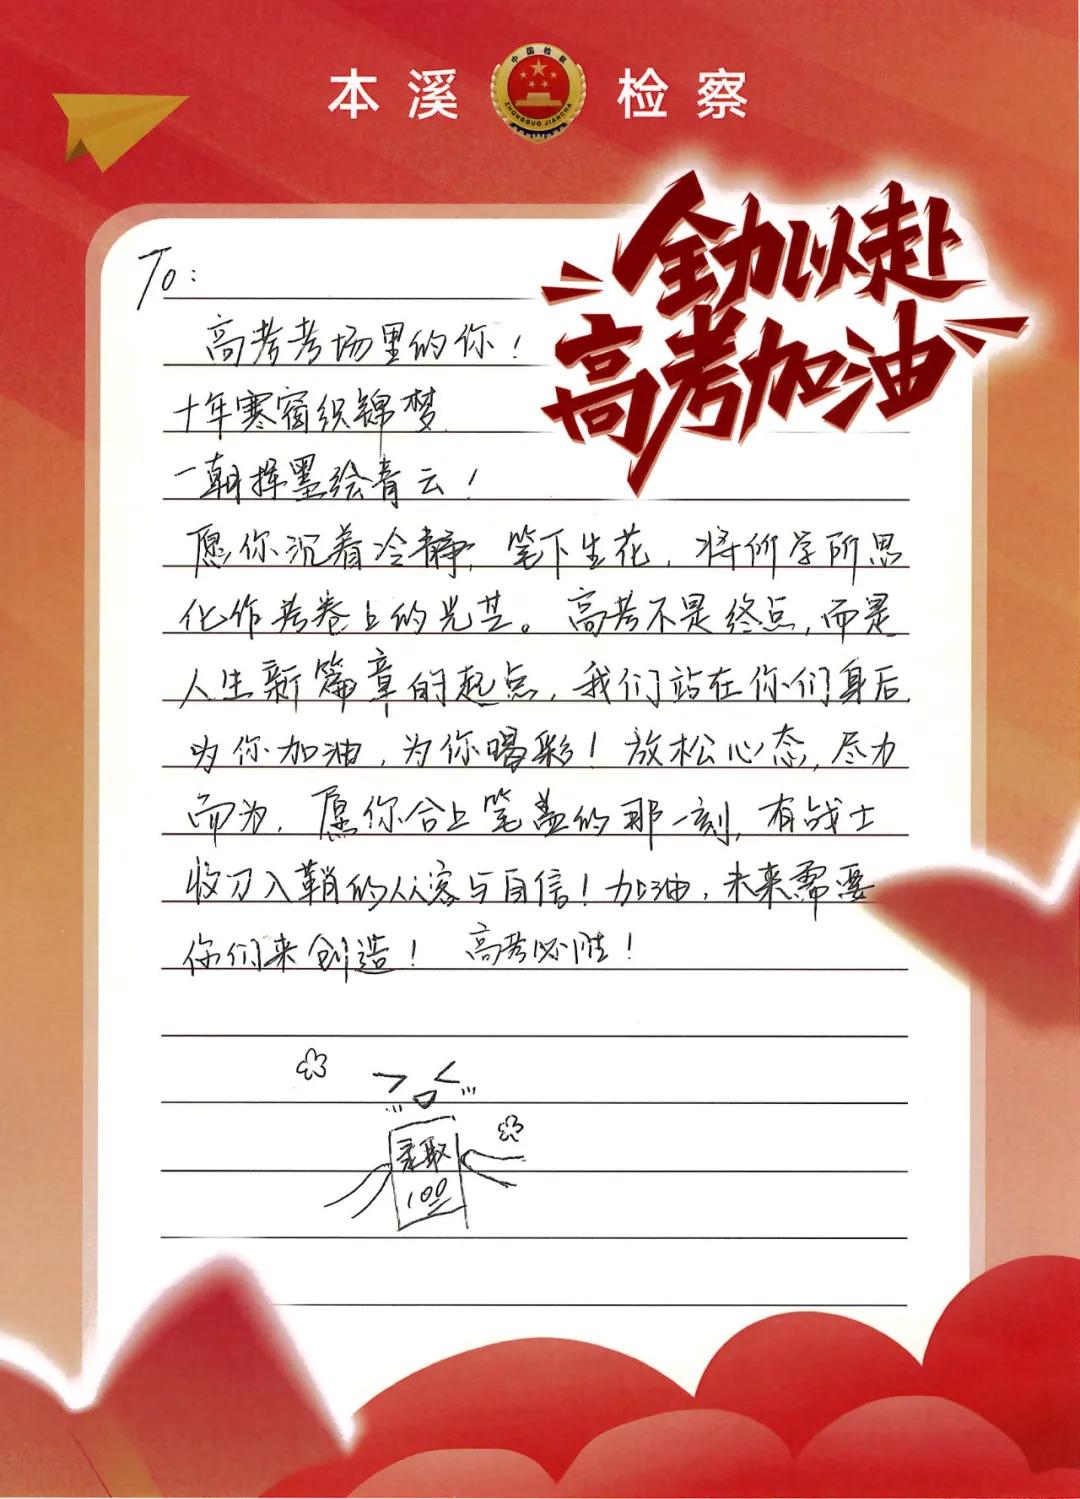 本溪 检察
中国检察
ZHONGGUO JIANCHA
全力以赴
高考加油
To:
高考考场里的你!
十年寒窗织锦梦
一朝挥墨绘青云!
愿你沉着冷静,笔下生花,将所学所思
化作考卷上的光芒。高考不是终点,而是
人生新篇章的起点,我们站在你们身后,
为你加油,为你喝彩!放松心态,尽力
而为,愿你合上笔盖的那一刻,有战士
收刀入鞘的从容与自信!加油,未来需要
你们来创造! 高考必胜!
录取
100